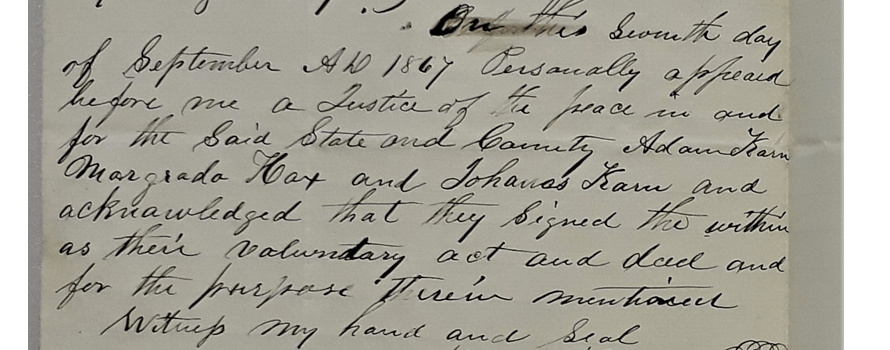 On this Seventh day
of September AD 1867 Personally appeard
before me a Justice of the peace in and
for the Said State and County Adam Karn
Margrada Kax and Johanas Karn and
acknawledged that they Signed the within
as their voluntary act and deed and
for the purpose therein mentioned
Witness my hand and Seal